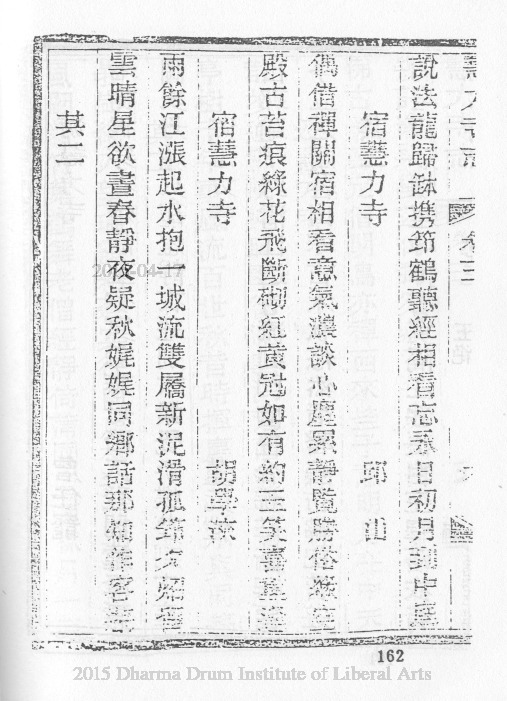 慧力寺志 卷三
說法龍歸鉢携筇鶴聽經相看忘永日初月到中庭
宿慧力寺 邱山
偶借禪關宿相看意氣濃談心塵累靜覽勝俗
殿古苔痕綠花飛斷砌紅黃冠如有約三笑喜重逢
宿慧力寺 胡學
雨餘江漲起水抱一城流雙屩新泥滑孤筇夕照
雲晴星欲晝春靜夜疑秋娓娓同鄉話那知作客
其二
2015-04-17
162
2015 Dharma Drum Institute of Liberal Arts